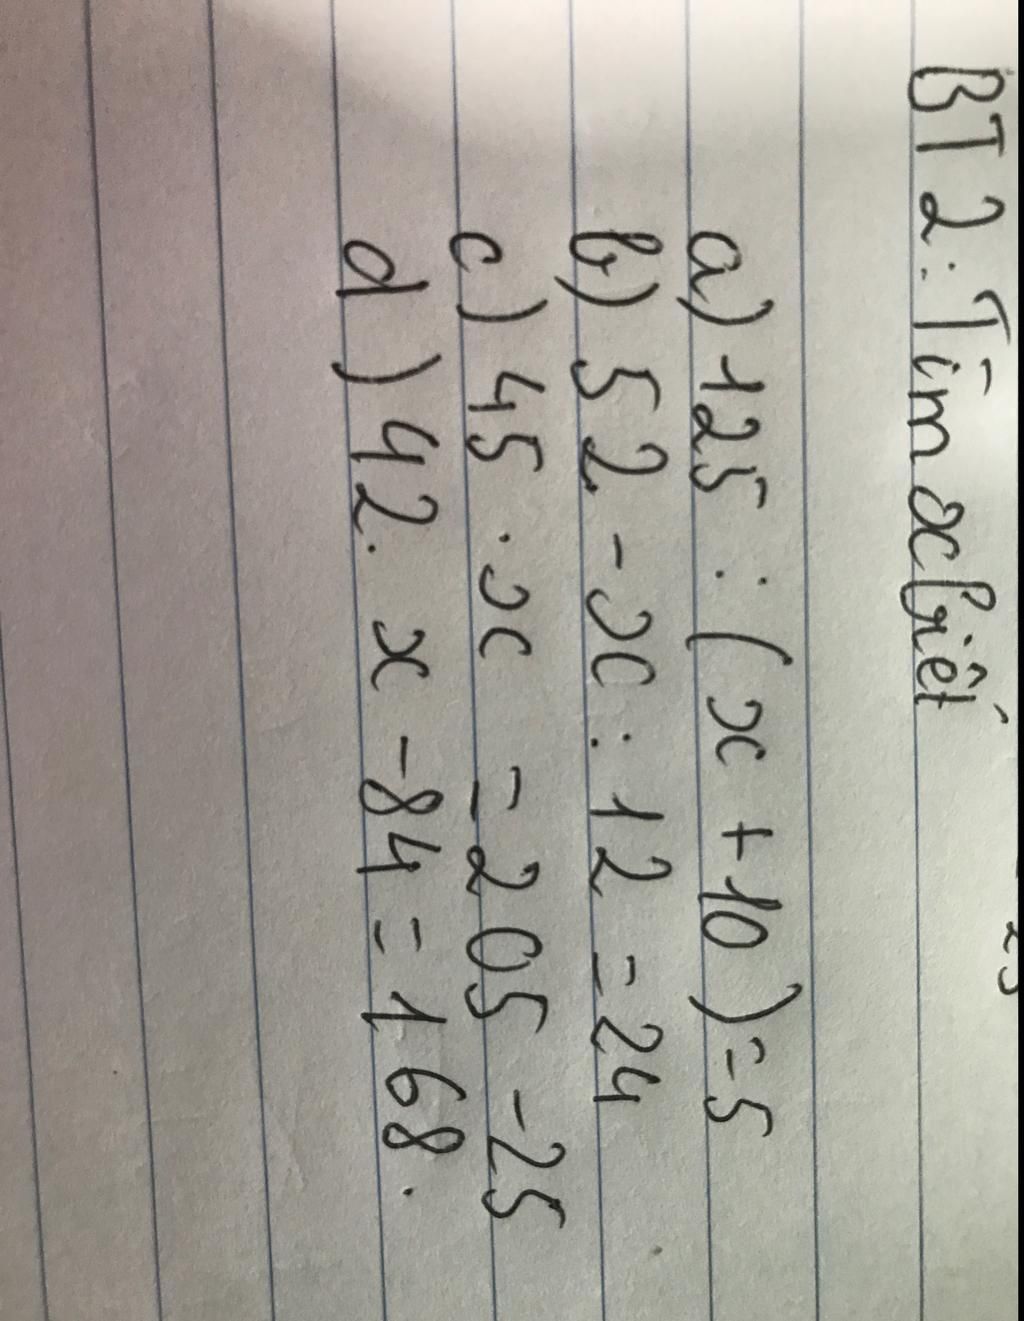 BT 2: Tìm x biết
a) 125 : (x + 10) = 5
b) 52 - x : 12 = 24
c) 45 . x = 205 - 25
d) 42. x - 84 = 168.